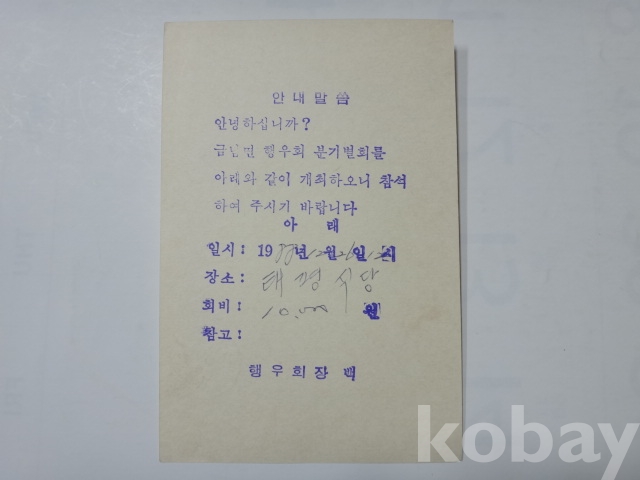 안내말씀
안녕하십니까?
금남면 행우회 분기별회를
아래와 같이 개최하오니 참석
하여 주시기 바랍니다
아 래
일시: 1988년 12월 26일 12시
장소: 태평식당
회비: 10,000 원
참고:
행우회장 백
kobay